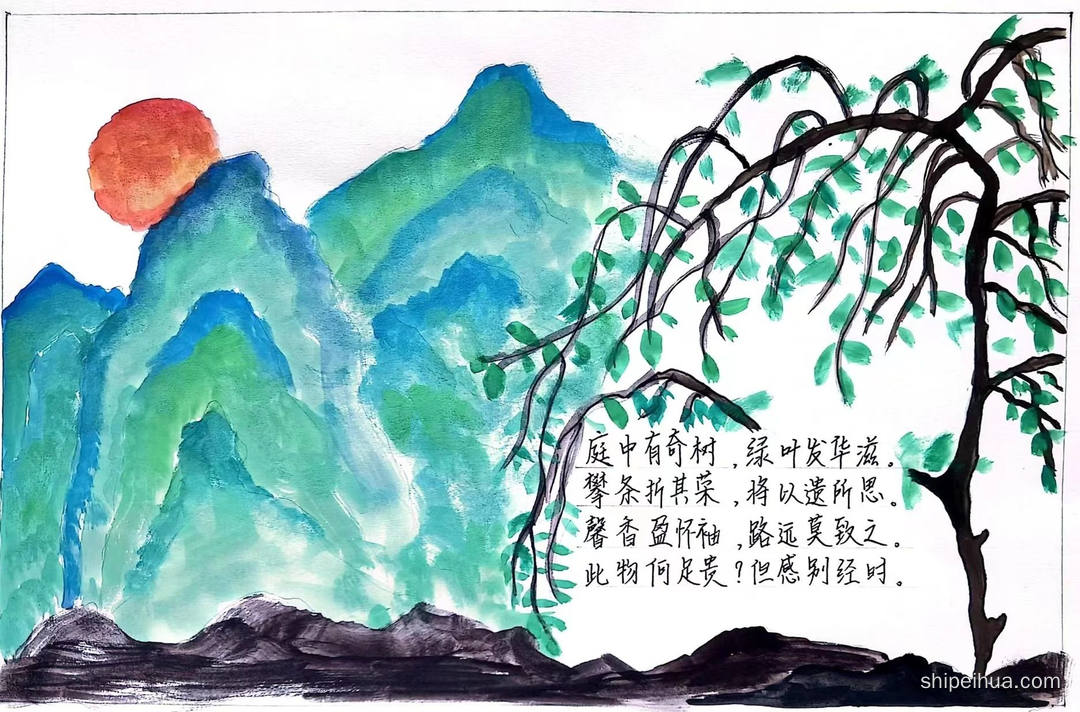 庭中有奇树,绿叶发华滋。
攀条折其荣,将以遗所思。
馨香盈怀袖,路远莫致之。
此物何足贵?但感别经时。
shipeihua.com